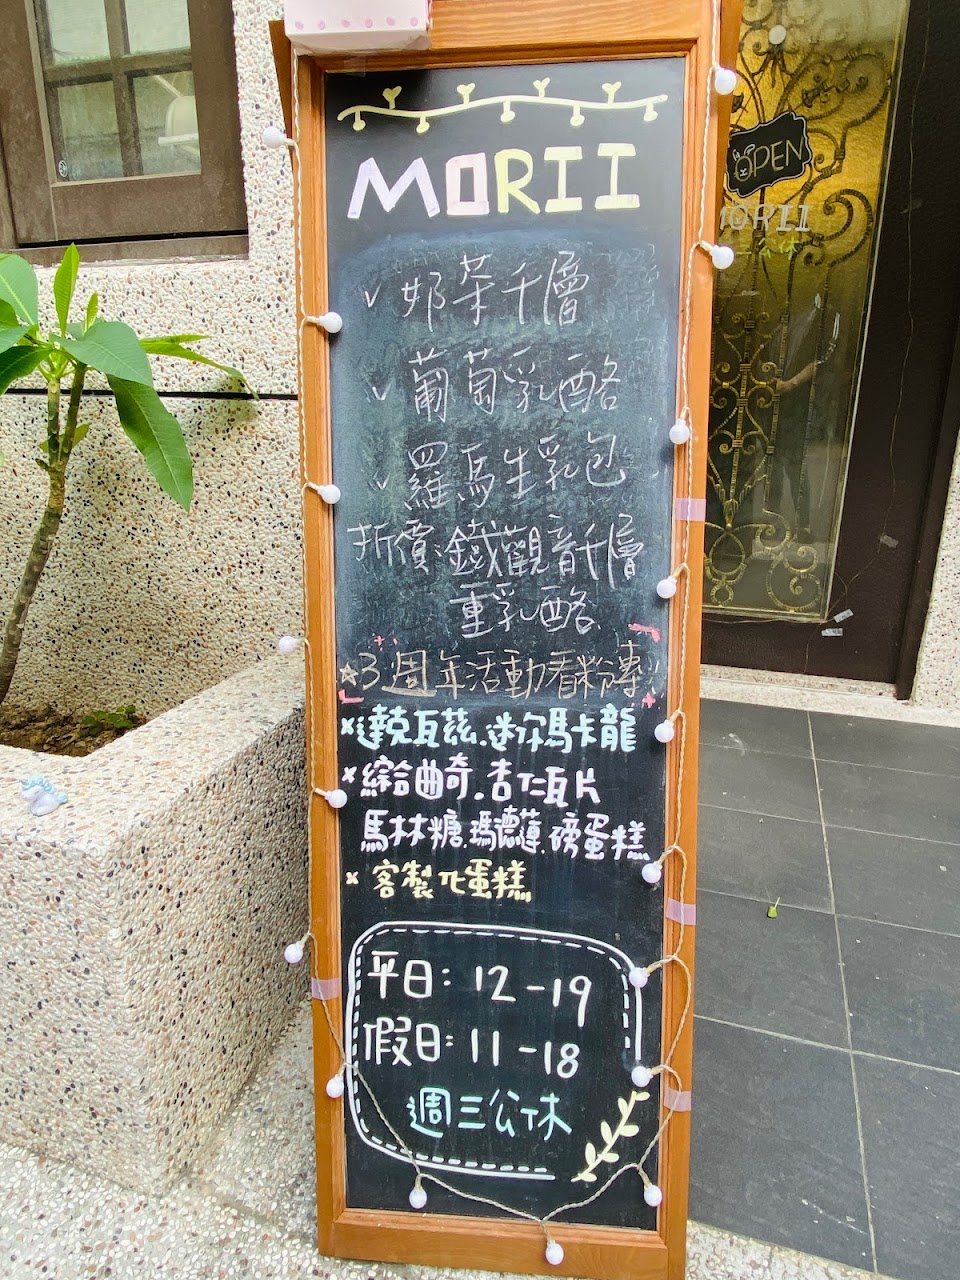 MORII
✓奶茶千層
✓葡萄乳酪
✓羅馬生乳包
折價:鐵觀音千層
重乳酪
☆3週年活動看粉專!
×達克瓦茲.迷你馬卡龍
×綜合曲奇.杏仁瓦片
馬林糖.瑪德蓮.磅蛋糕
×客製化蛋糕
平日: 12-19
假日: 11-18
週三公休
OPEN
MORII